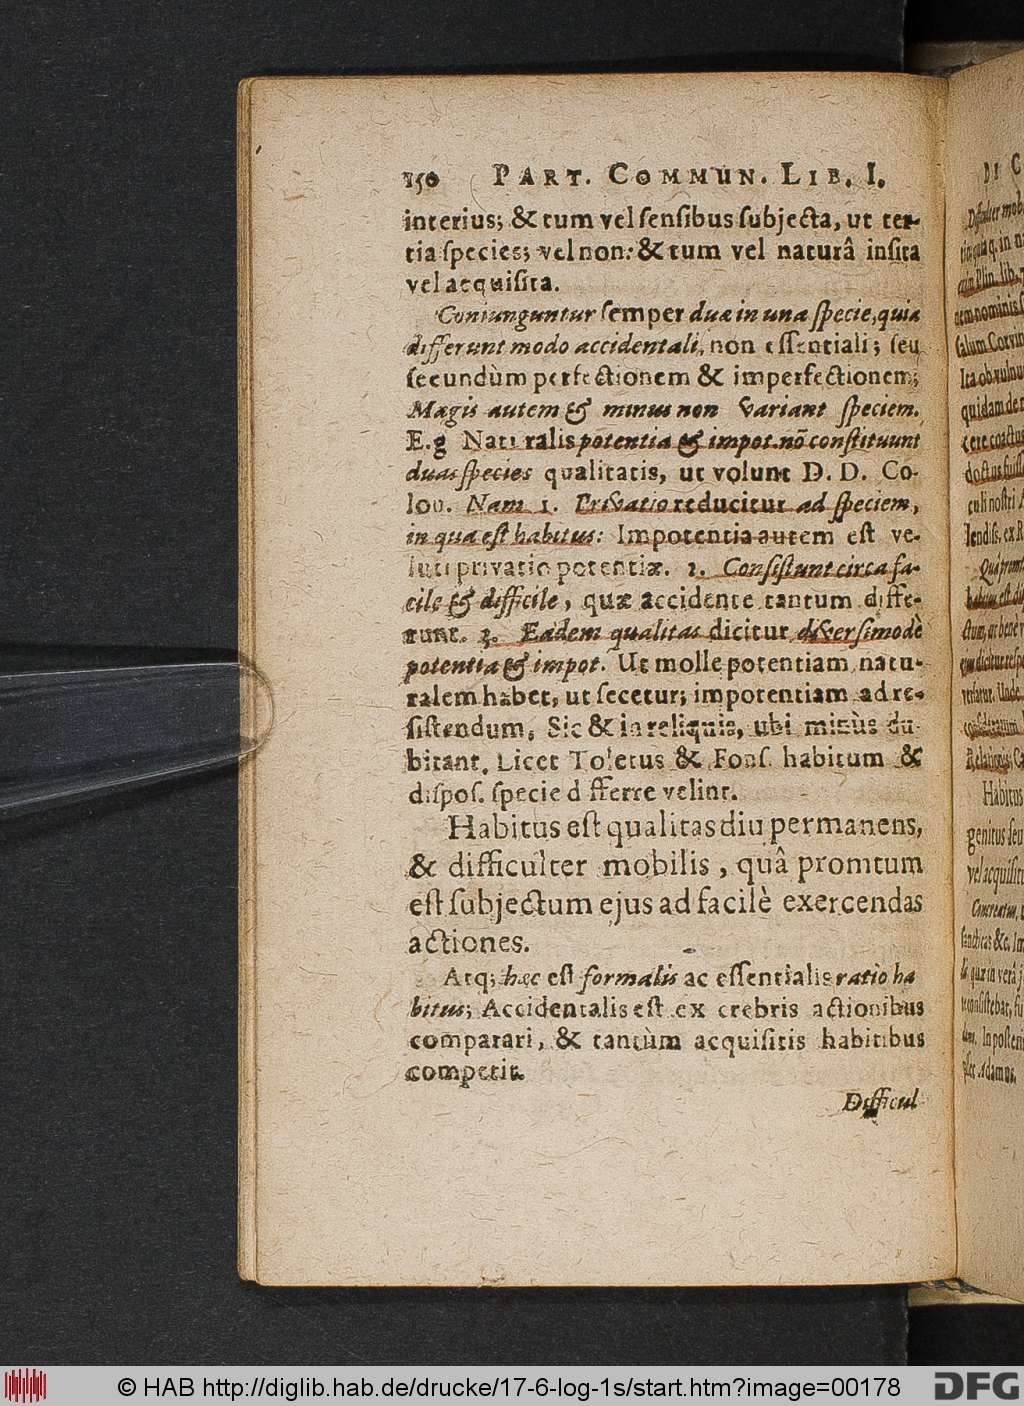 150 PART. COMMUN. LIB. I.
interius; & tum vel sensibus subjecta, ut ter-
tia species; vel non: & tum vel naturâ insita
vel acquisita.
Coniunguntur semper duæ in una specie, quia
differunt modo accidentali, non essentiali; seu
secundùm perfectionem & imperfectionem;
Magis autem & minus non variant speciem.
E.g Naturalis potentia & impot. nō constituunt
duas species qualitatis, ut volunt D. D. Co-
lon. Nam 1. Privatio reducitur ad speciem,
in qua est habitus: Impotentia autem est ve-
luti privatio potentiæ. 2. Consistunt circa fa-
cile & difficile, quæ accidente tantum diffe-
runt. 3. Eadem qualitas dicitur diversimodè
potentia & impot. Ut molle potentiam natu-
ralem habet, ut secetur; impotentiam ad re-
sistendum. Sic & in reliquis, ubi minùs du-
bitant. Licet Toletus & Fons. habitum &
dispos. specie differre velint.
Habitus est qualitas diu permanens,
& difficulter mobilis, quâ promtum
est subjectum ejus ad facilè exercendas
actiones.
Atq; hæc est formalis ac essentialis ratio ha
bitus; Accidentalis est ex crebris actionibus
comparari, & tantùm acquisitis habitibus
competit.
Difficul
© HAB http://diglib.hab.de/drucke/17-6-log-1s/start.htm?image=00178
DFG